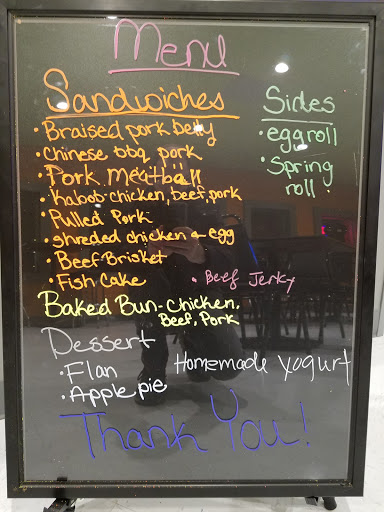 Menu
Sandwiches
• Braised pork belly
• Chinese bbq pork
• Pork meatball
• Kabob-chicken, beef, pork
• Pulled Pork
• shreded chicken & egg
• Beef Brisket
• Fish Cake
• Beef Jerky
Baked Bun-Chicken,
Beef, Pork
Sides
• eggroll
• Spring
roll
Dessert
• Flan
• Apple pie
Homemade Yogurt
Thank You!